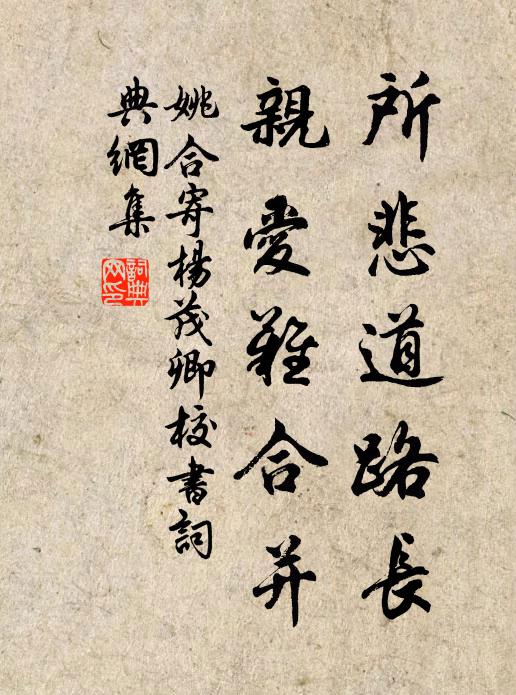 所悲道路長
親愛難合并
姚合寄楊茂卿校書詞
典網集
詞典网印